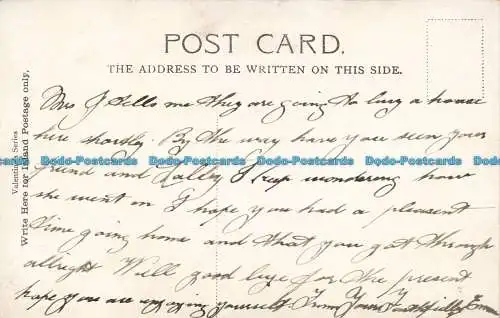 POST CARD.
THE ADDRESS TO BE WRITTEN ON THIS SIDE.
Valentines Series
Write Here for Inland Postage only,
Mrs J tells me they are going to buy a house
here shortly. By the way have you seen your
friend and I keep wondering how
she went on I hope you had a pleasent
time going home and that you got through
allright Well good bye for the present
hope you are enjoying yourself. From Yours Faithfully Em
Dodo-Postcards Dodo-Postcards Dodo-Postcards Dodo-Postcards